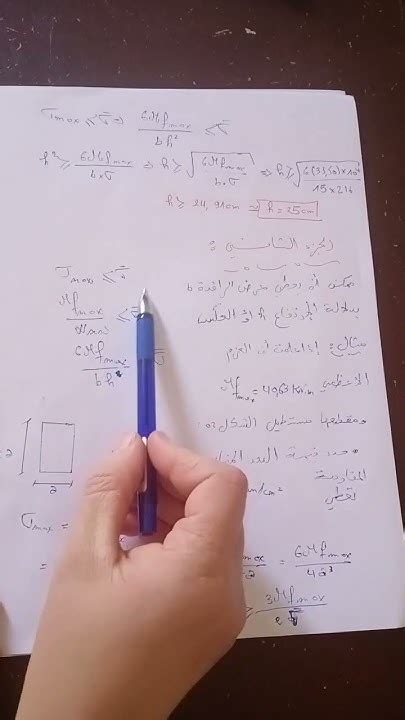 σmax ≤ σ̄ ⇒ 6Mfmax / bh² ≤ σ̄
h² ≥ 6Mfmax / b.σ̄ ⇒ h ≥ √(6Mfmax / b.σ̄) ⇒ h ≥ √(6(33,50)×10⁴ / 15×216
h ≥ 24,91cm ⇒ h = 25cm
الجزء الثاني :
σmax ≤ σ̄
يمكن أن يعطى عرض الرافدة b
Mfmax / ≤ σ̄
بدلالة الإرتفاع h أو العكس
6Mfmax / bh² σ̄
مثال : إذا علمت أن العزم
الأعظمي Mfmax = 49,63 KN.m
ومقطعها مستطيل الشكل
حدد قيمة البعد
= 2
a
المقاومة
تعطى /cm²
σmax =
= 6Mfmax / 4a³
≥ 3Mfmax / 2σ̄